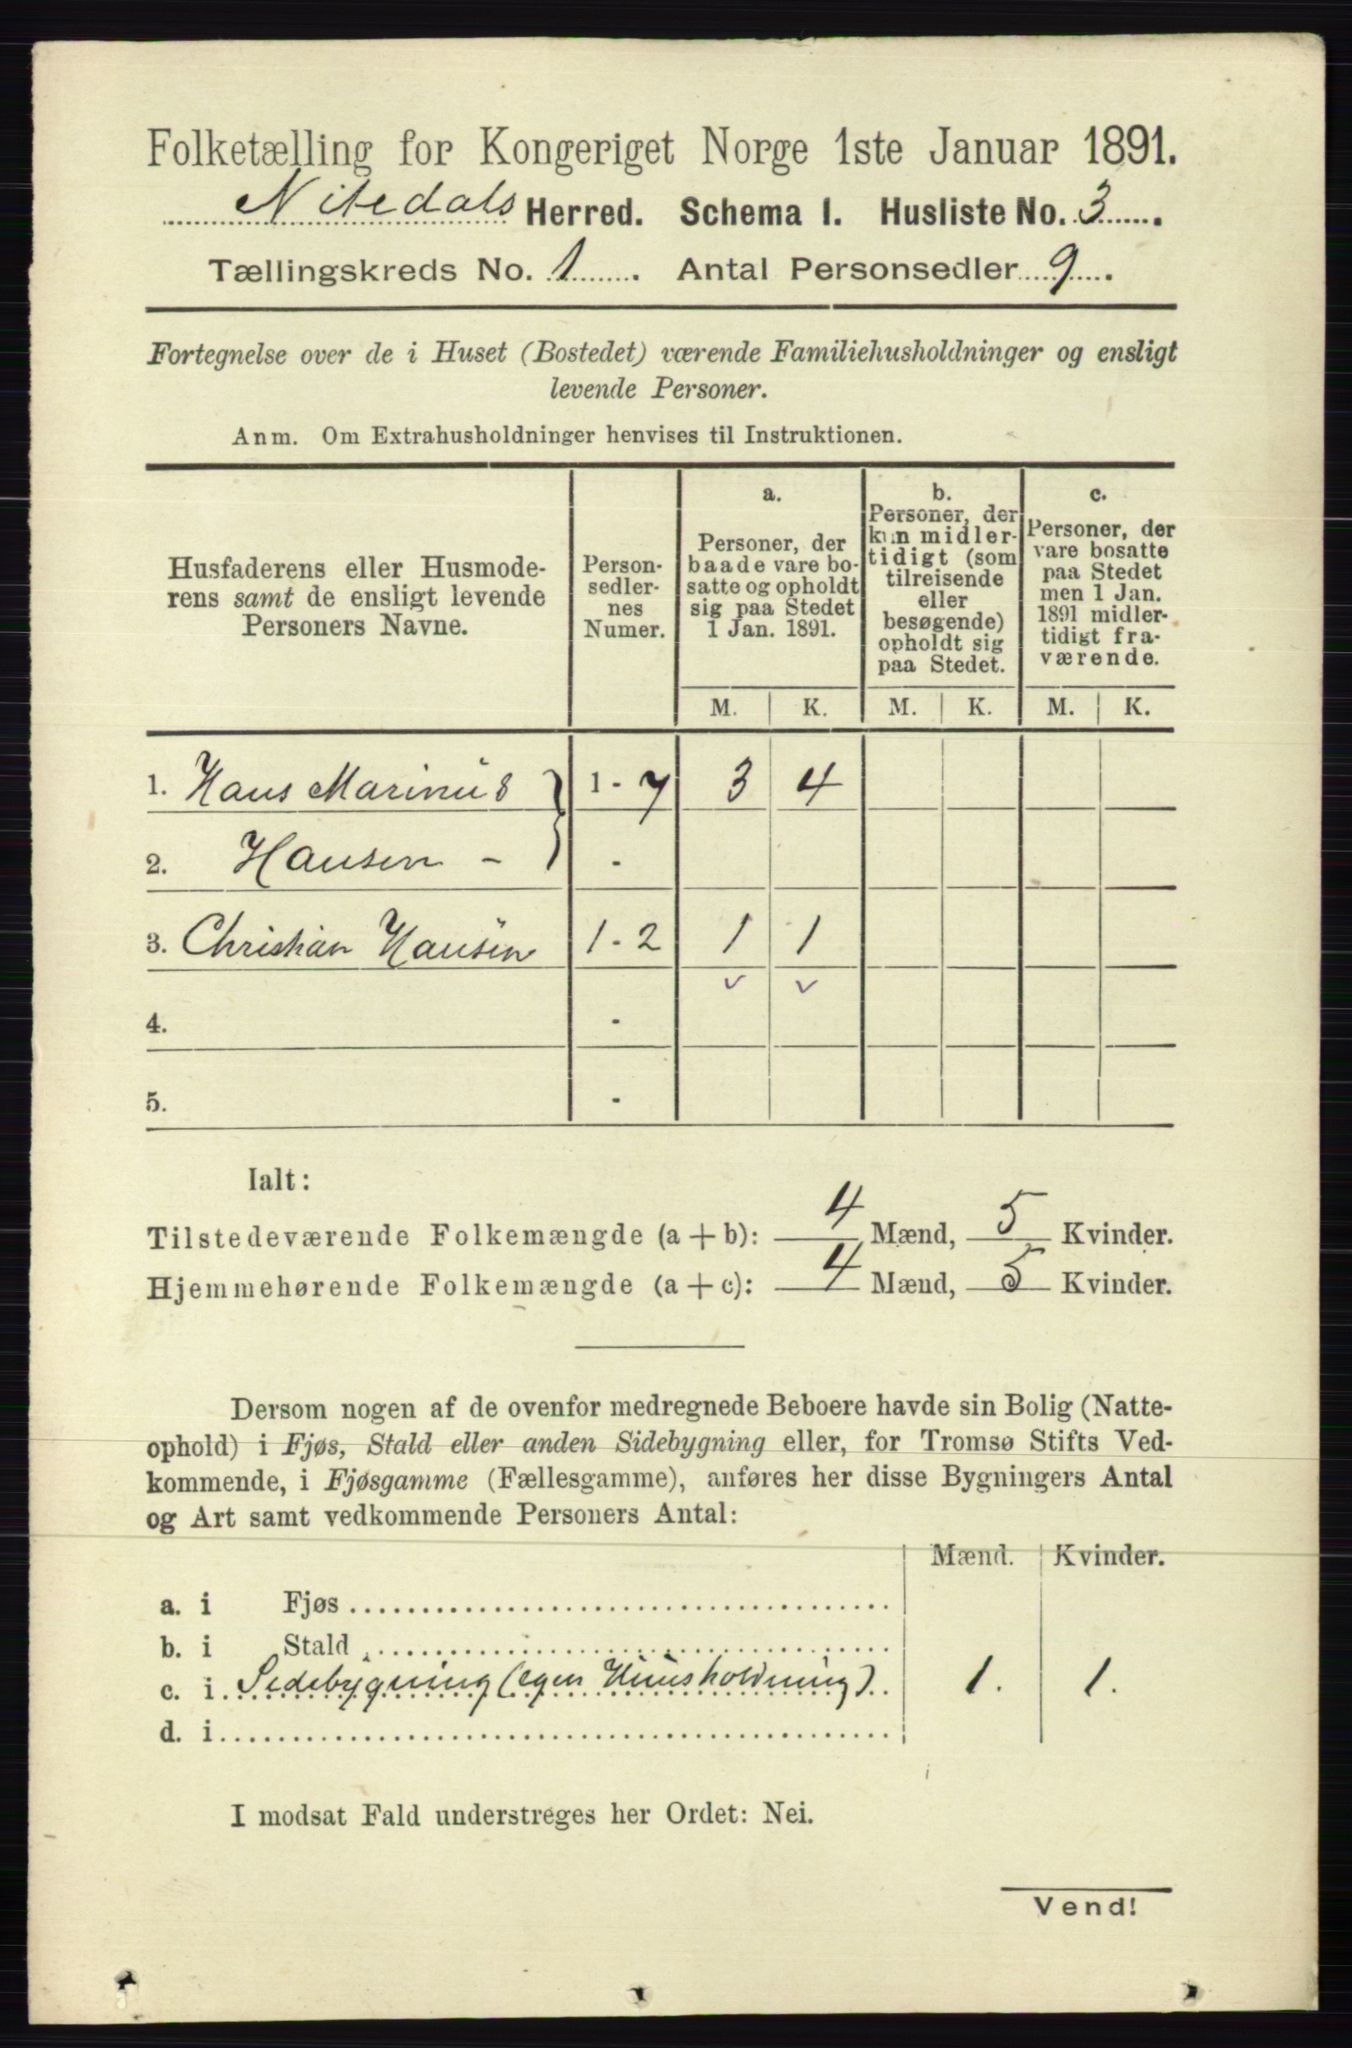 Folketælling for Kongeriget Norge 1ste Januar 1891.
Nitedals Herred. Schema I. Husliste No. 3.
Tællingskreds No. 1. Antal Personsedler 9.
Fortegnelse over de i Huset (Bostedet) værende Familiehusholdninger og ensligt
levende Personer.
Anm. Om Extrahusholdninger henvises til Instruktionen.
Husfaderens eller Husmode-
rens samt de ensligt levende
Personers Navne.
Person-
sedler-
nes
Numer.
a.
Personer, der
baade vare bo-
satte og opholdt
sig paa Stedet
1 Jan. 1891.
b.
Personer, der
kun midler-
tidigt (som
tilreisende
eller
besøgende)
opholdt sig
paa Stedet.
c.
Personer, der
vare bosatte
paa Stedet
men 1 Jan.
1891 midler-
tidigt fra-
værende.
M. K. M. K. M. K.
1. Hans Marinus 1-7 3 4
2. Hansen - -
3. Christian Hansen 1-2 1 1
4. -
5. -
Ialt:
Tilstedeværende Folkemængde (a+b): 4 Mænd, 5 Kvinder.
Hjemmehørende Folkemængde (a+c): 4 Mænd, 5 Kvinder.
Dersom nogen af de ovenfor medregnede Beboere havde sin Bolig (Natte-
ophold) i Fjøs, Stald eller anden Sidebygning eller, for Tromsø Stifts Ved-
kommende, i Fjøsgamme (Fællesgamme), anføres her disse Bygningers Antal
og Art samt vedkommende Personers Antal:
Mænd. Kvinder.
a. i Fjøs
b. i Stald
c. i Sidebygning (egen Huusholdning) 1. 1.
d. i
I modsat Fald understreges her Ordet: Nei.
Vend!